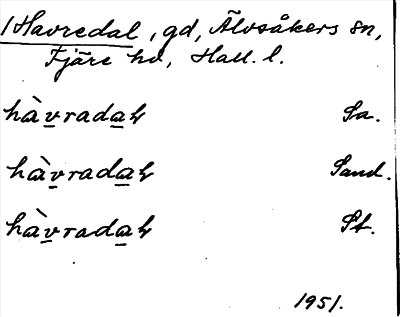 1 Havredal, gd, Älvsåkers sn,
Fjäre hd, Hall. l.
hàvradaɫ Sa.
hàvradaɫ Sand.
hàvradaɫ St.
1951.